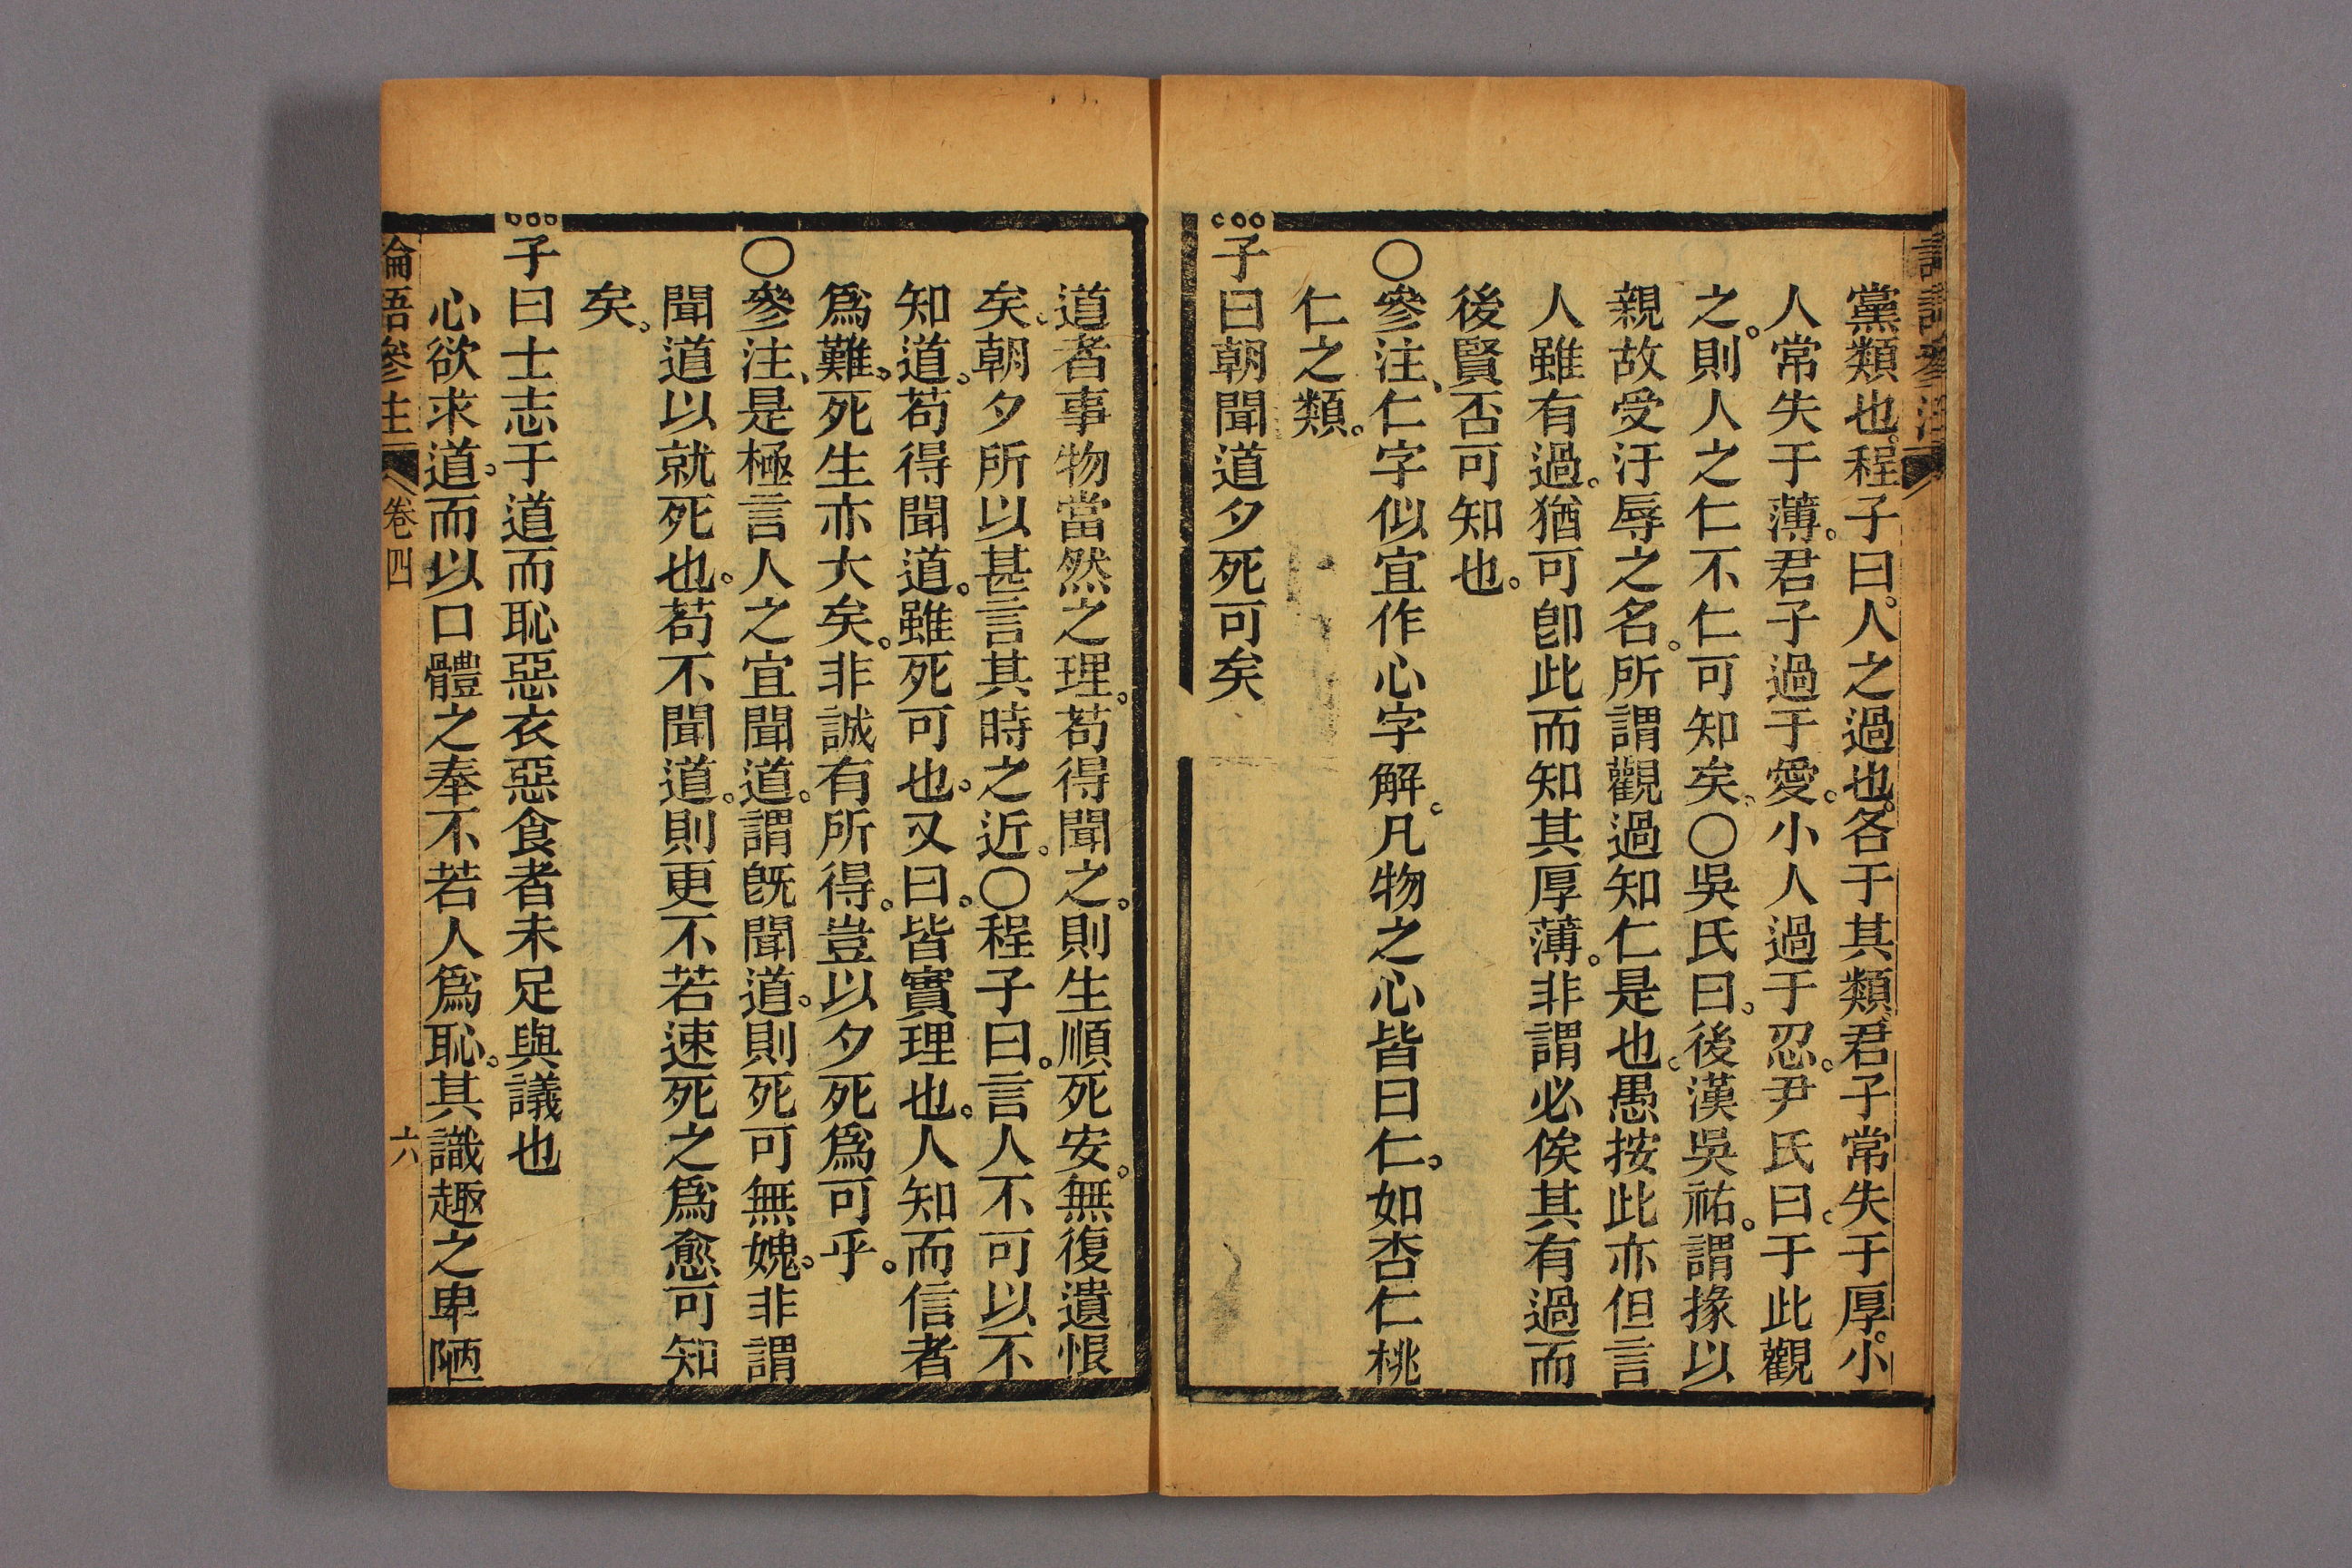 黨類也。程子曰。人之過也。各于其類。君子常失于厚。小
人常失于薄。君子過于愛。小人過于忍。尹氏曰。于此觀
之。則人之仁不仁可知矣。〇吳氏曰。後漢吳祐。謂掾以
親故受汙辱之名。所謂觀過知仁是也。愚按此亦但言
人雖有過。猶可卽此而知其厚薄。非謂必俟其有過而
後賢否可知也。
〇參注、仁字似宜作心字解。凡物之心皆曰仁。如杏仁桃
仁之類。
子曰朝聞道夕死可矣
道者事物當然之理。苟得聞之。則生順死安。無復遺恨
矣。朝夕所以甚言其時之近。〇程子曰。言人不可以不
知道。苟得聞道。雖死可也。又曰。皆實理也。人知而信者
爲難。死生亦大矣。非誠有所得。豈以夕死爲可乎。
〇參注、是極言人之宜聞道。謂旣聞道。則死可無媿。非謂
聞道以就死也。苟不聞道。則更不若速死之爲愈可知
矣。
子曰士志于道而恥惡衣惡食者未足與議也
心欲求道。而以口體之奉不若人爲恥。其識趣之卑陋
論語參注 卷四 六